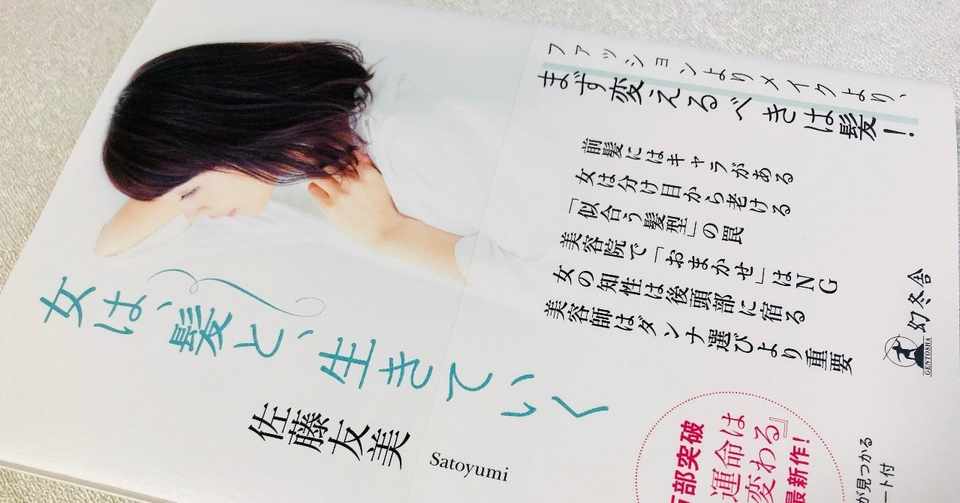 ファッションよりメイクより、
まず変えるべきは髪!
前髪にはキャラがある
女は分け目から老ける
「似合う髪型」の罠
美容院で「おまかせ」はNG
女の知性は後頭部に宿る
美容師はダンナ選びより重要
女は、髪と、生きていく
佐藤友美
Satoyumi
幻冬舎
GENTOSHA
部突破
運命は
変わる』
最新作!
が見つかる
ート付